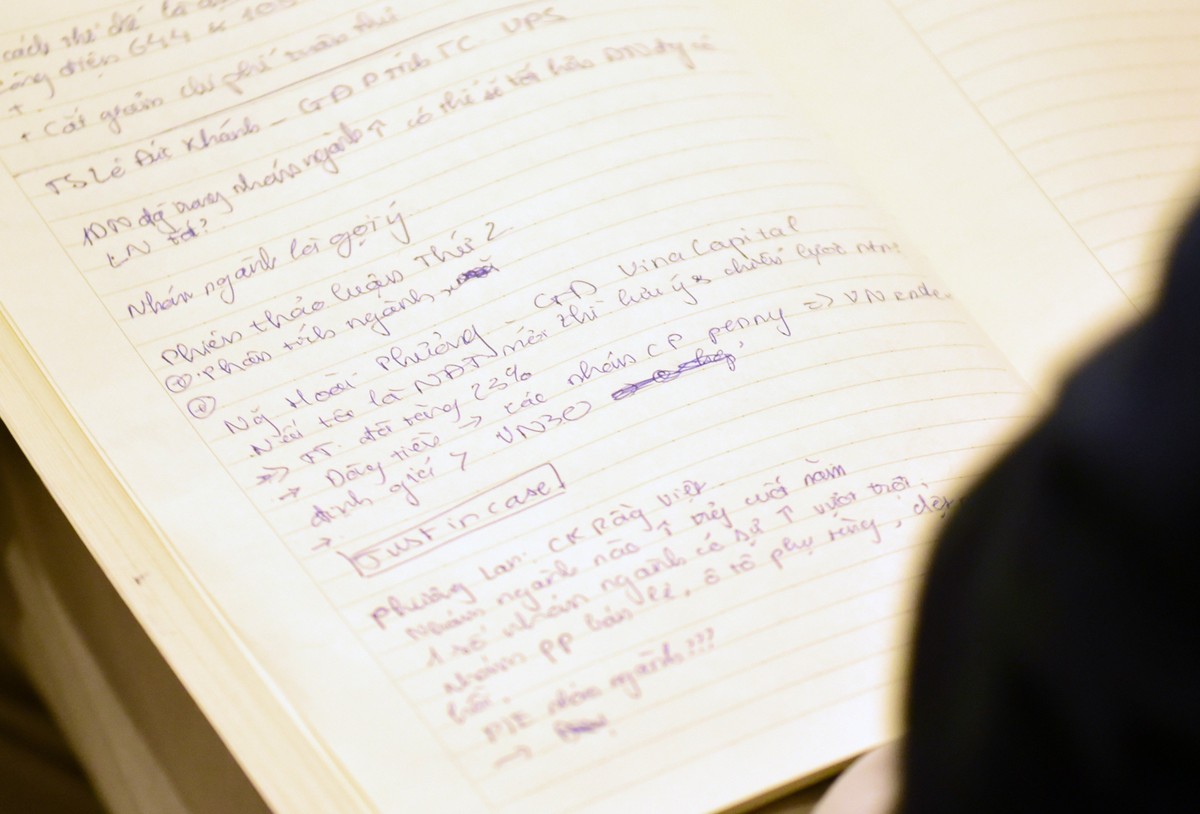 cách thể chế là
công điện
+
+ Cắt giảm chi phí tuân thủ
TS Lê Đức Khánh - GĐ Ptích TC VPS
1DN đa trong nhóm ngành ↑ có thể sẽ
LN tốt?
Nhóm ngành là gợi ý
Phiên thảo luận thứ 2
⊕ . Phân tích ngành
⊕
Ng Hoài Phương - GĐ VinaCapital
Nếu tôi là NĐT mới thì lưu ý chiến lược ntn?
=> FT. đòi ròng 23%
→ Dòng tiền → các nhóm CP penny => VN
định giá > VN30
→ Just in case
Phương Lan: CK Rồng Việt.
Nhóm ngành nào ↑ mấy cuối năm
1 số nhóm ngành có sự ↑ vượt trội.
Nhóm PP bán lẻ, ô tô phụ tùng, dệt
P/E nhóm ngành???
→